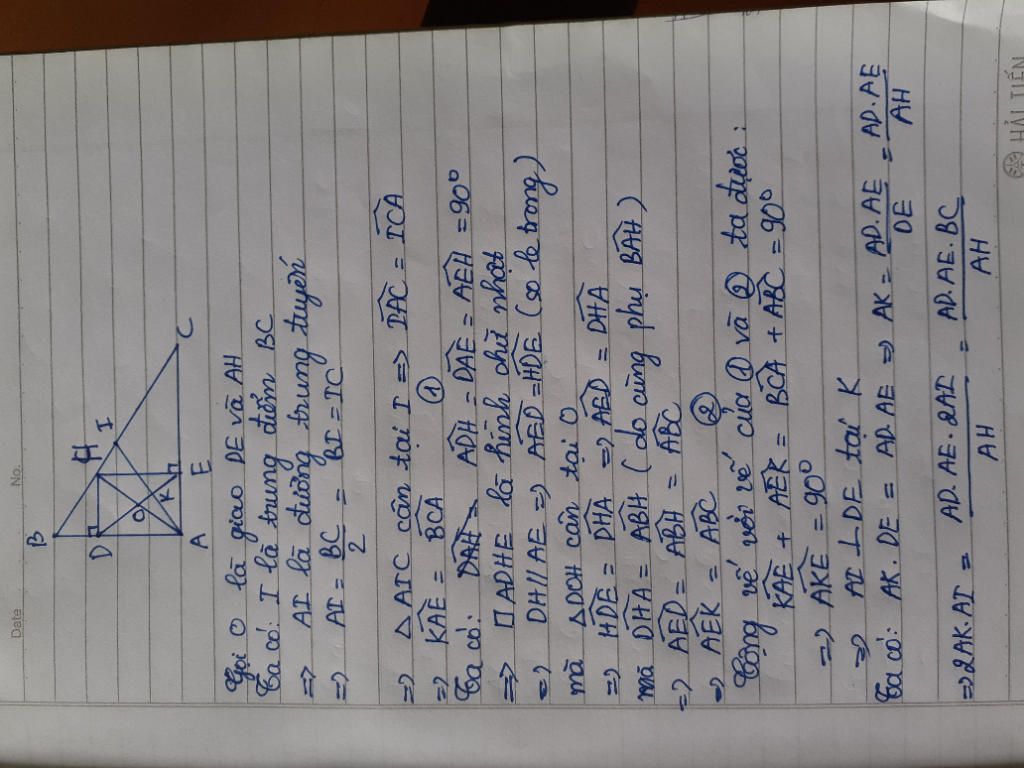 Date No.
B
D
H
I
O
K
A
E
C
Gọi O là giao DE và AH
Ta có: I là trung điểm BC
=> AI là đường trung tuyến
=> AI = BC/2 = BI = IC
=> △AIC cân tại I => \widehat{IAC} = \widehat{ICA}
=> \widehat{KAE} = \widehat{BCA} ①
Ta có: \widehat{ADH} = \widehat{DAE} = \widehat{AEH} = 90°
=> □ADHE là hình chữ nhật
=> DH // AE => \widehat{AED} = \widehat{HDE} (so le trong)
mà △DOH cân tại O
=> \widehat{HDE} = \widehat{DHA} => \widehat{AED} = \widehat{DHA}
mà \widehat{DHA} = \widehat{ABH} (do cùng phụ \widehat{BAH})
=> \widehat{AED} = \widehat{ABH} = \widehat{ABC}
=> \widehat{AEK} = \widehat{ABC} ②
Cộng vế với vế của ① và ② ta được:
\widehat{KAE} + \widehat{AEK} = \widehat{BCA} + \widehat{ABC} = 90°
=> \widehat{AKE} = 90°
=> AI ⊥ DE tại K
Ta có: AK.DE = AD.AE => AK = AD.AE/DE = AD.AE/AH
=> 2AK.AI = AD.AE.2AI/AH = AD.AE.BC/AH
HẢI TIẾN